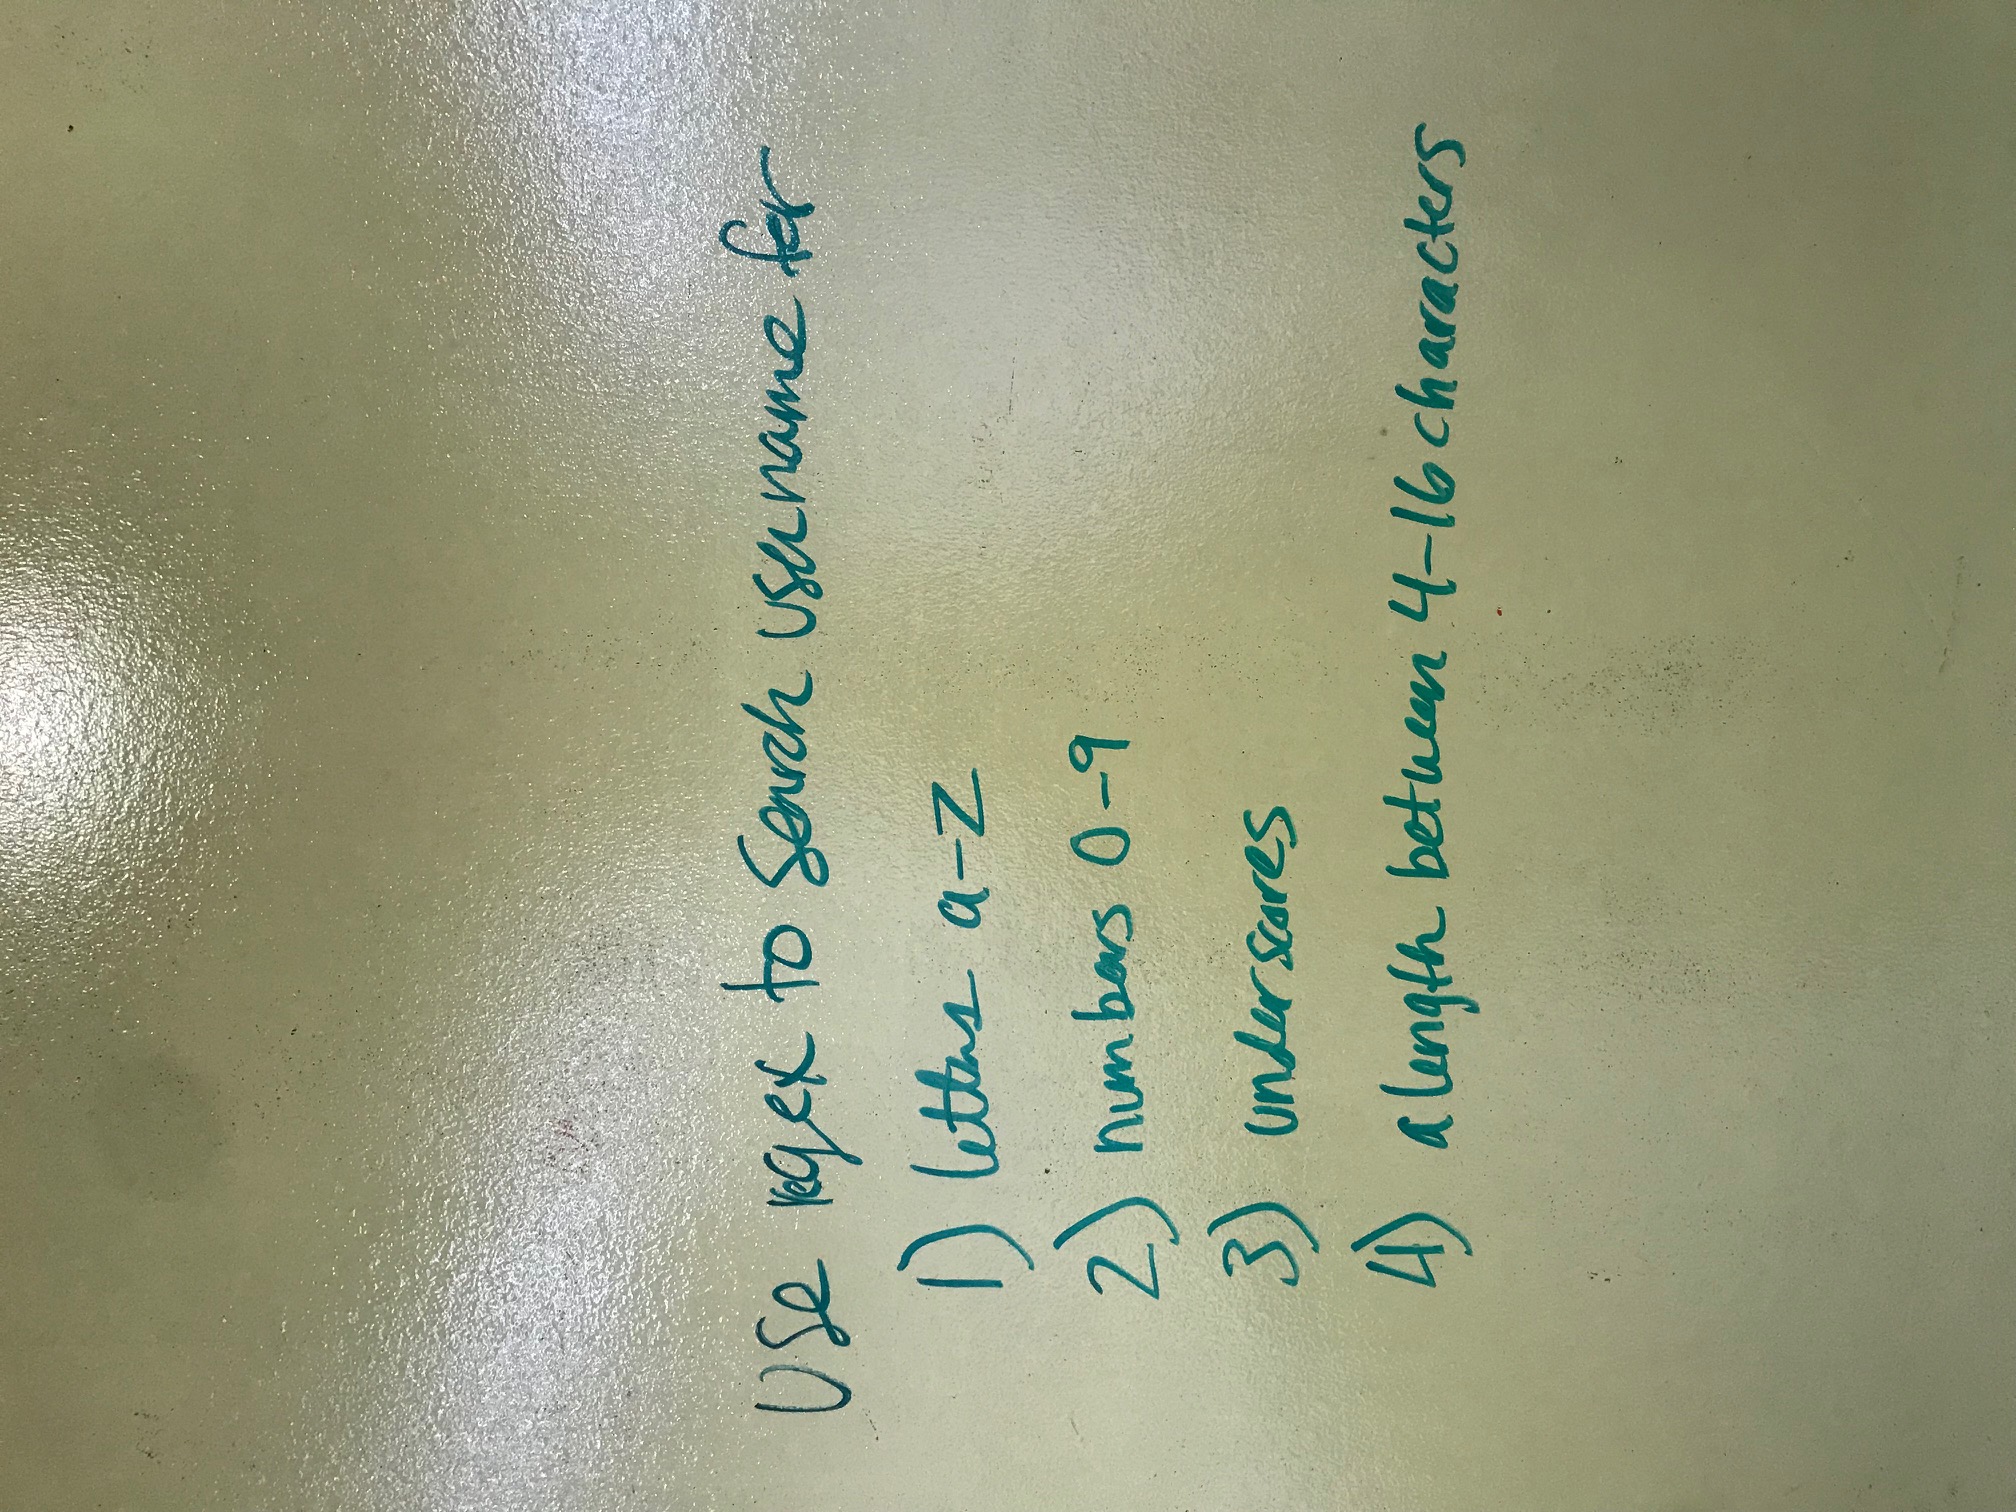 Use regex to search username for
1) letters a-z
2) numbers 0-9
3) underscores
4) a length between 4-16 characters